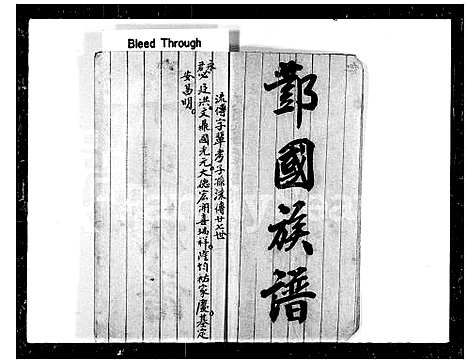 Bleed Through
鄷國族譜
流傳字輩孝子孫流傳廿七世
永君必廷洪文鼎國光元大德宏開喜瑞祥隆均祐家慶基定
安昌明